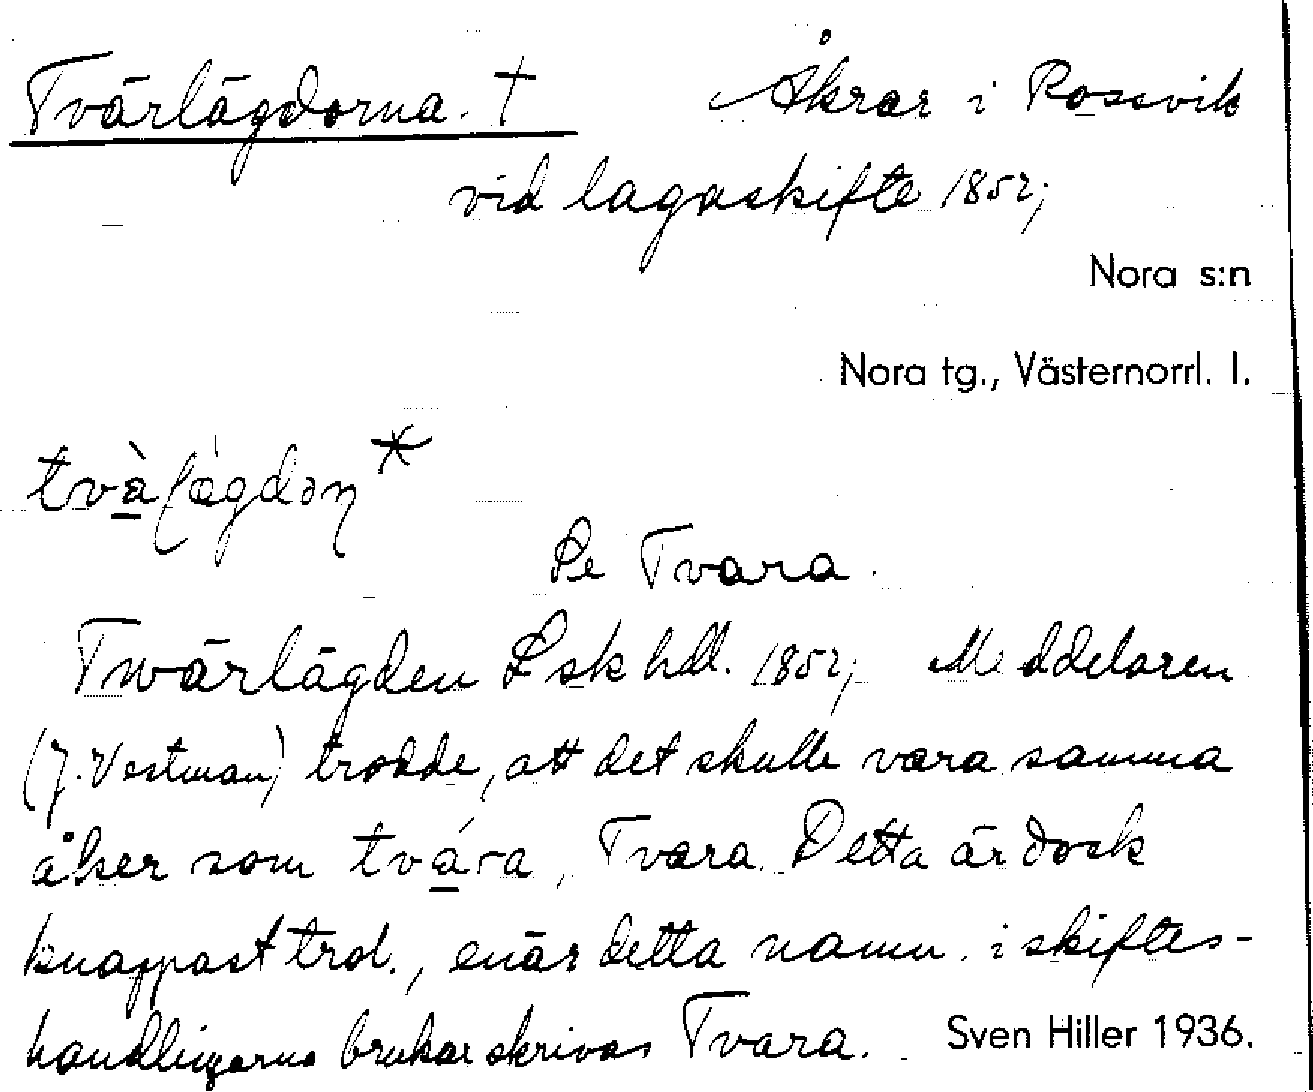 Tvärlägdorna. † Åkrar i Rossvik
vid lagaskifte 1852;
Nora s:n
Nora tg., Västernorrl. l.
Se Tvara.
Twärlägden Lskhdl. 1852; Meddelaren
(J. Vestman) trodde, att det skulle vara samma
åker som tvára, Tvara. Detta är dock
knappast trol., enär detta namn i skiftes-
handlingarna brukar skrivas Tvara. Sven Hiller 1936.